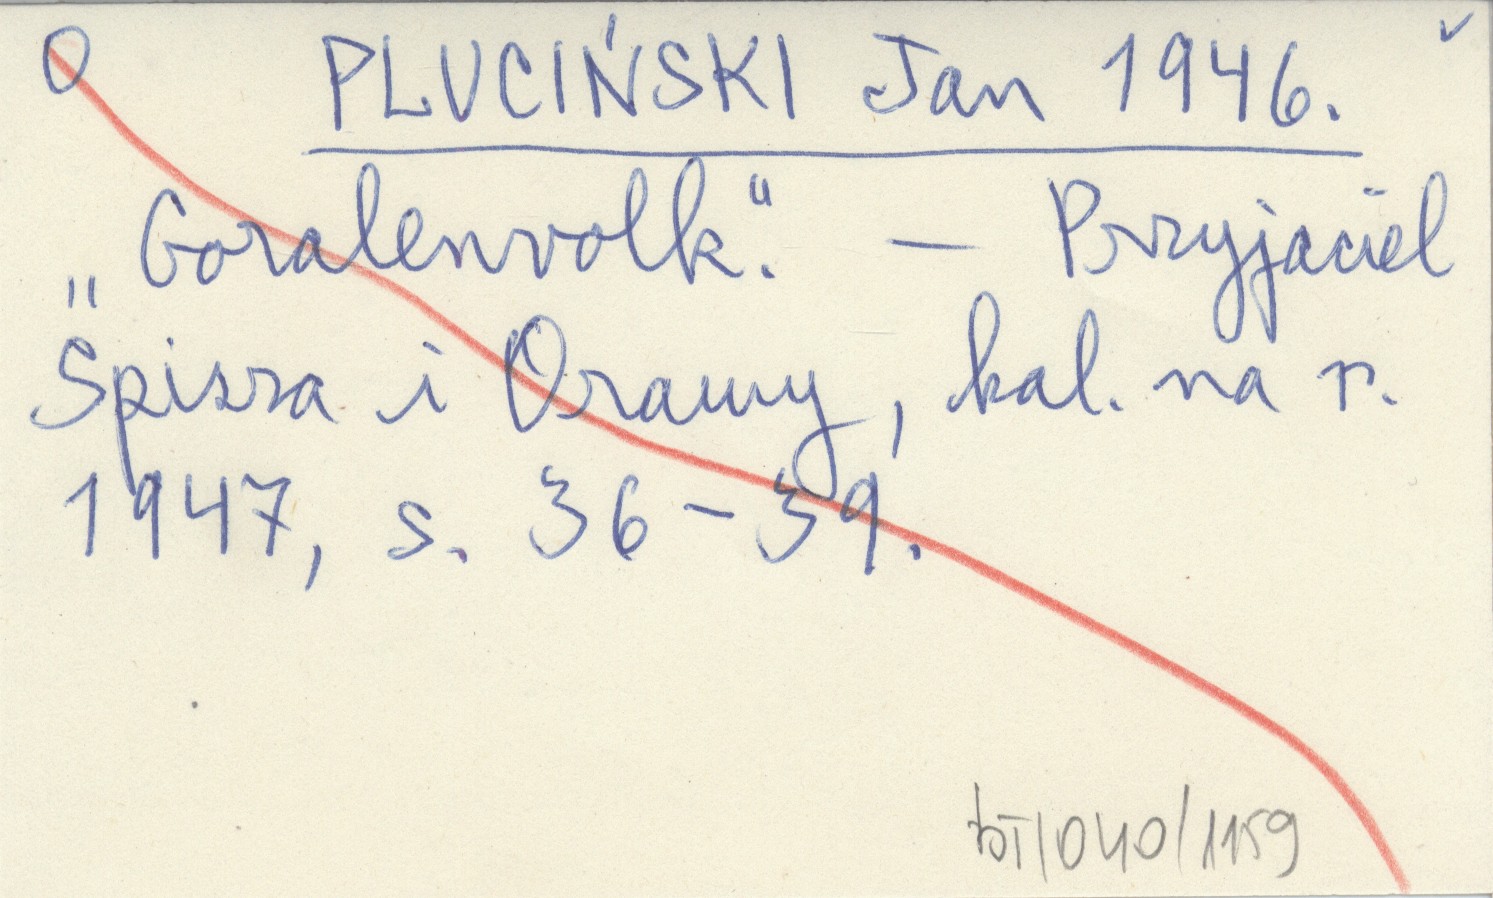 O PLUCIŃSKI Jan 1946.
„Goralenvolk". — Przyjaciel
Spisza i Orawy, kal. na r.
1947, s. 36-39.
bT/040/1159